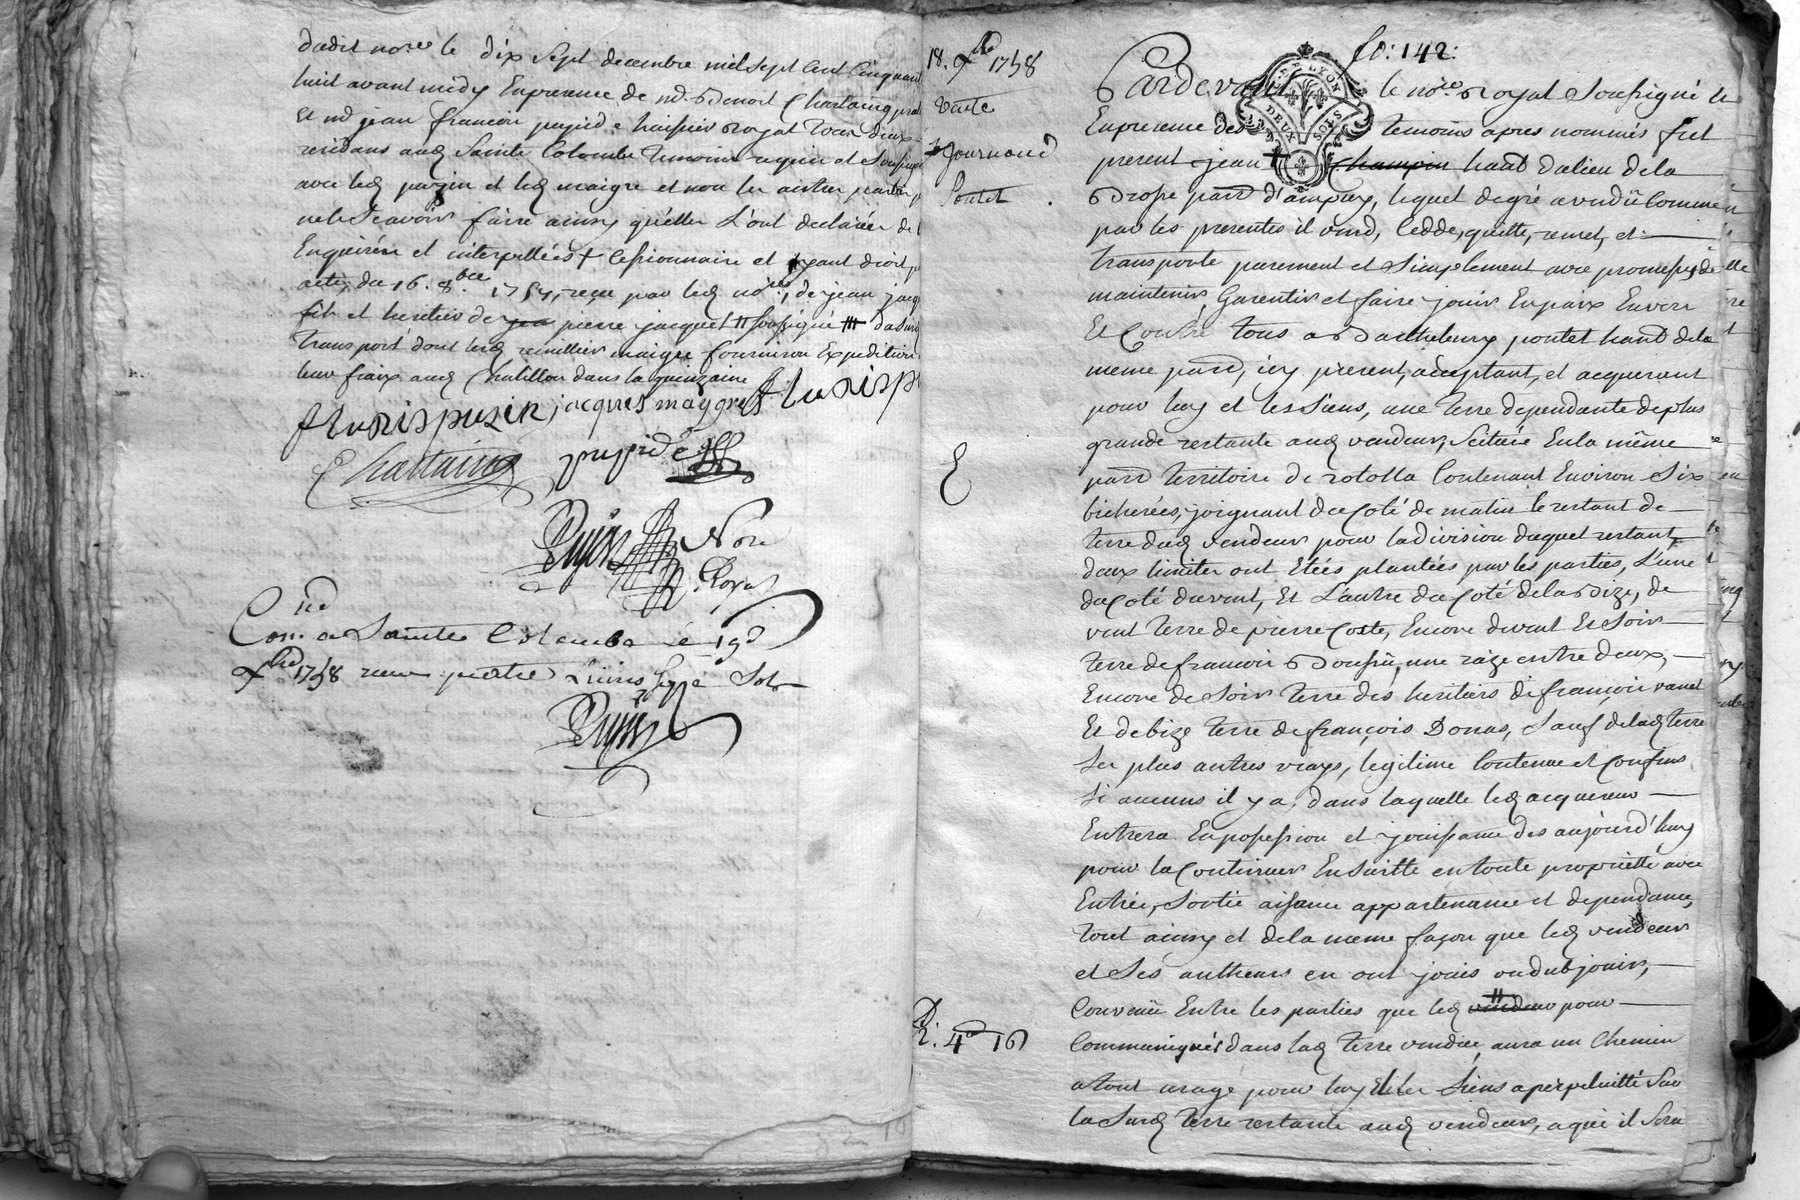 dudit no.re le dix sept decembre mil sept cent cinquan
huit avant midy En presence de m.d Benoit Chartaing
et m.d jean francois pupid huissier royal tous deux
residans aud Sainte Colombe temoins requis et Soussig
avec led puzin et led maigre et non les autres parties p
ne le Scavoir faire ainsy qu'elles L'ont declarées de
Enquirées et interpellées + cessionnaire et ayant droit p
acte, du 16. 8.bre 1757, recu par led no.re, de jean jacq
fils et heritier de pierre jacquet # soussigné ##
transport dont led maigre fournira Expedition
leur fraix aud Chatillon dans la quinzaine
fluris pusin jacques maygre fluris p
Chartaing pupid
No.re
Royal
Con. a Sainte Colombe le 19
X.bre 1758 recu quatre Livres Seize Sols
18. X.bre 1758
Vente
Pontet
R: 4 16
fo: 142:
LYON
DEUX SOLS
Pardevant le no.re Royal Soussigné et
En presence des temoins apres nommés fut
present jean + Champin hant du lieu de la
Brosse par.d d'ampuy, lequel de gré a vendû comme
par les presentes il vend, Cedde, quitte, remet, et
transporte purement et Simplement avec promesse de
maintenir, Garentir et faire jouir En paix Envers
Et Contre tous a Barthelemy pontet hant de la
meme par.d, icy present, acceptant, et acquerant
pour luy et les Siens, une terre dependante de plus
grande restante aud vendeur, Scituée En la même
par.d territoire de rotolla Contenant Environ Six
bicherées, joignant du coté de matin le restant de
terre dud vendeur pour la division duquel restant
deux limites ont Etées plantées par les parties, L'une
du Coté du vent, Et L'autre du Coté de la Bize, de
vent terre de pierre Coste, Encore de vent Et Soir
terre de francois Bonsin, une raze entre deux,
Encore de Soir terre des heritiers de françois vanel
Et de bize terre de françois Donas, Sauf de lad terre
Ses plus autres vrays, legitime Contenue et Confins
Si aucuns il y a, dans laquelle led acquereur
Entrera En possession et jouissance des aujourd'huy
pour la Continuer En Suitte en toute proprietté avec
Entrée, Sortie aisance appartenance et dependance,
tout ainsy et de la meme façon que led vendeur
et Ses autheurs en ont jouis ou dub jouir,
Convenu Entre les parties que led vendeur pour
Communiquer dans lad terre vendue, aura un Chemin
a tout usage pour luy Et les Siens a perpetuitté Sur
la Surd terre restante aud vendeur, a qui il Sera